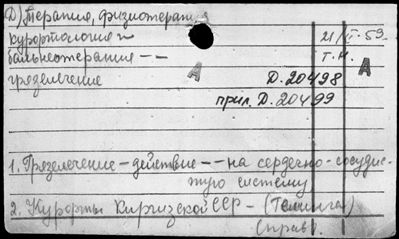 Д) Терапия, физиотерапия
курортология 21/V-59.
бальнеотерапия -- Т.Н.
грязелечение А А
Д. 20498
прил. Д. 20499
1. Грязелечение - действие -- на сердечно-сосудис-
тую систему
2. Курорты Киргизской ССР - (Теплинга)
Справ.